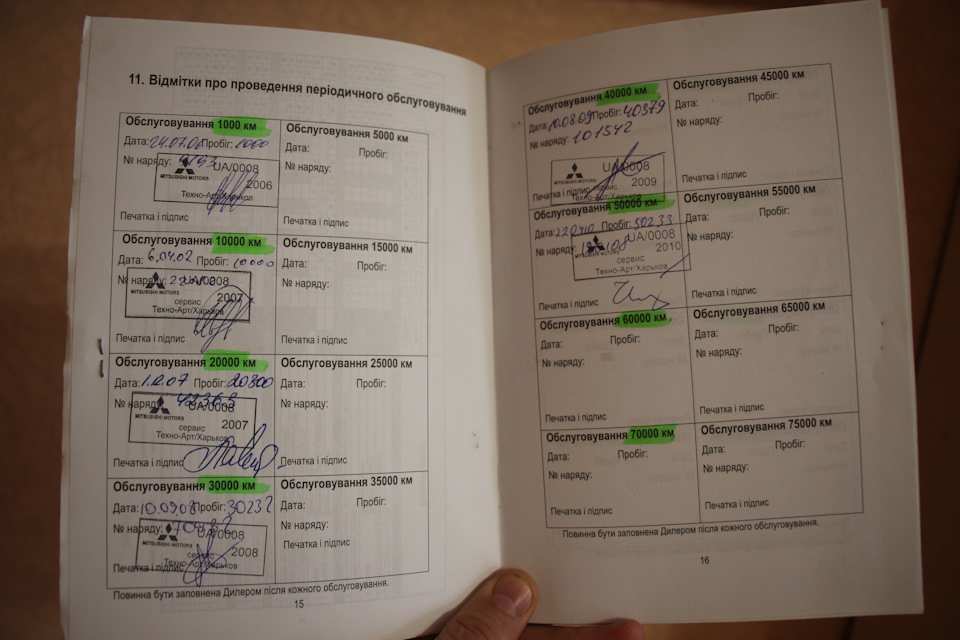 11. Відмітки про проведення періодичного обслуговування
Обслуговування 1000 км
Дата: 24.07.06 Пробіг: 1000
№ наряду:
MITSUBISHI MOTORS
UA/0008
2006
Техно-Арт/Харьков
Печатка і підпис
Обслуговування 5000 км
Дата: Пробіг:
№ наряду:
Печатка і підпис
Обслуговування 10000 км
Дата: 6.04.02 Пробіг: 10000
№ наряду:
UA/0008
MITSUBISHI MOTORS
2007
сервис
Техно-Арт/Харьков
Печатка і підпис
Обслуговування 15000 км
Дата: Пробіг:
№ наряду:
Печатка і підпис
Обслуговування 20000 км
Дата: 1.12.07 Пробіг: 20800
№ наряду:
UA/0008
MITSUBISHI MOTORS
2007
сервис
Техно-Арт/Харьков
Печатка і підпис
Обслуговування 25000 км
Дата: Пробіг:
№ наряду:
Печатка і підпис
Обслуговування 30000 км
Дата: 10.09.08 Пробіг: 30232
№ наряду:
UA/0008
MITSUBISHI MOTORS
2008
сервис
Техно-Арт/Харьков
Печатка і підпис
Обслуговування 35000 км
Дата: Пробіг:
№ наряду:
Печатка і підпис
Повинна бути заповнена Дилером після кожного обслуговування.
15
Обслуговування 40000 км
Дата: 10.08.09 Пробіг: 40379
№ наряду: 101542
UA/0008
MITSUBISHI MOTORS
2009
сервис
Техно-Арт/Харьков
Печатка і підпис
Обслуговування 45000 км
Дата: Пробіг:
№ наряду:
Печатка і підпис
Обслуговування 50000 км
Дата: 220410 Пробіг: 50233
№ наряду:
UA/0008
2010
сервис
Техно-Арт/Харьков
Печатка і підпис
Обслуговування 55000 км
Дата: Пробіг:
№ наряду:
Печатка і підпис
Обслуговування 60000 км
Дата: Пробіг:
№ наряду:
Печатка і підпис
Обслуговування 65000 км
Дата: Пробіг:
№ наряду:
Печатка і підпис
Обслуговування 70000 км
Дата: Пробіг:
№ наряду:
Печатка і підпис
Обслуговування 75000 км
Дата: Пробіг:
№ наряду:
Печатка і підпис
Повинна бути заповнена Дилером після кожного обслуговування.
16